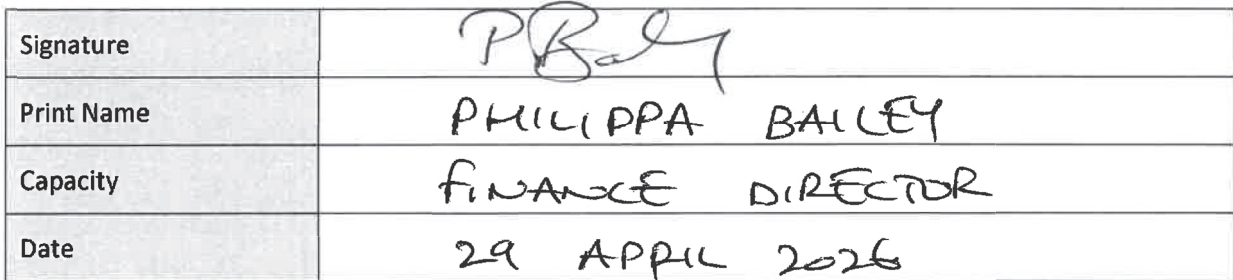 Signature PBailey
Print Name PHILIPPA BAILEY
Capacity FINANCE DIRECTOR
Date 29 APRIL 2026